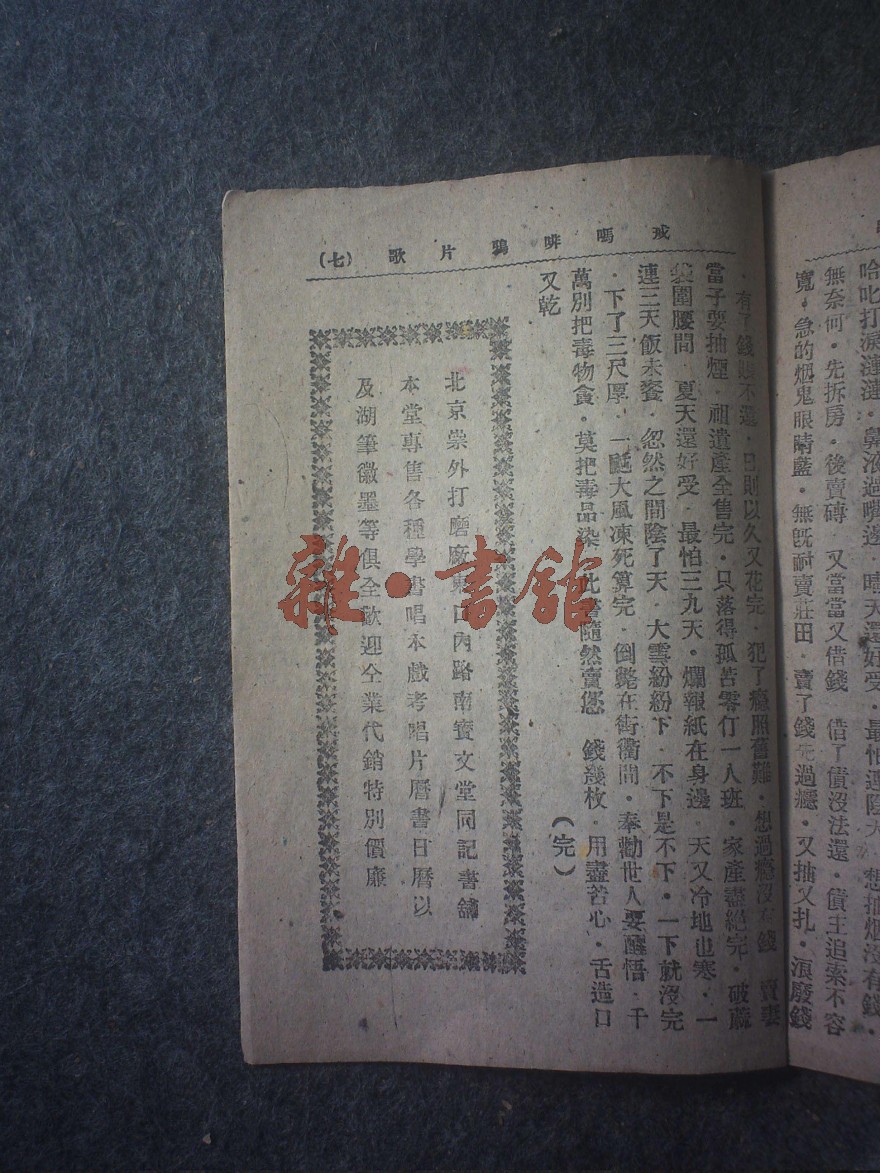 哈叱打淚漣漣．鼻液過嘴邊．晴天還好受．最怕連陰天．想抽烟沒有錢．
無奈何．先拆房．後賣磚．又當當又借錢．借了債沒法還．債主追索不容
寬．急的烟鬼眼睛藍．無旣耐賣莊田．賣了錢先過癮．又抽又扎．滇廢錢
戒嗎啡鴉片歌（七）
．有了錢還不還．日則以久又花完．犯了癮照舊難．想過癮沒有錢．賣妻
當子要抽烟．祖遺產全售完．只落得孤苦零仃一人班．家產盡絕完．破蔴
袋圍腰間．夏天還好受．最怕三九天．爛報紙在身邊．天又冷地也寒．一
連三天飯未餐．忽然之間陰了天．大雪紛紛下．不下是不下．一下就沒完
．下了三尺厚．一颳大風凍死算完．倒斃在街衢間．奉勸世人要醒悟．千
萬別把毒物貪．莫把毒品染．此書隨然賣您．錢幾枚．用盡苦心．舌造口
又乾
（完）
北京崇外打磨廠東口內路南寳文堂同記書舖
本堂專售各種學書唱本戲考唱片曆書日曆以
及湖筆徽墨等俱全歡迎仝業代銷特別價廉
雜·書館